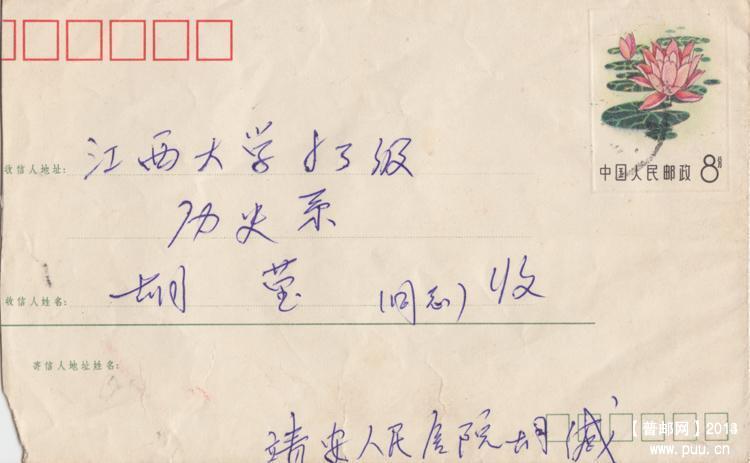 中国人民邮政 8分
收信人地址: 江西大学 83级
历史系
收信人姓名: 胡莹 (同志) 收
寄信人地址姓名:
靖安人民医院 胡
【普邮网】2013
www.puu.cn